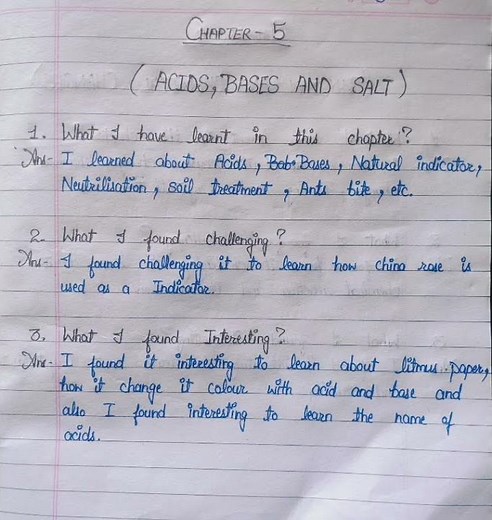 CHAPTER - 5
(ACIDS, BASES AND SALT)
1. What I have learnt in this chapter?
Ans- I learned about Acids, Bases, Natural indicator,
Neutrilisation, soil treatment, Ants bite, etc.
2. What I found challenging?
Ans- I found challenging it to learn how china rose is
used as a Indicator.
3. What I found Interesting?
Ans- I found it interesting to learn about litmus paper,
how it change it colour with acid and base and
also I found interesting to learn the name of
acids.